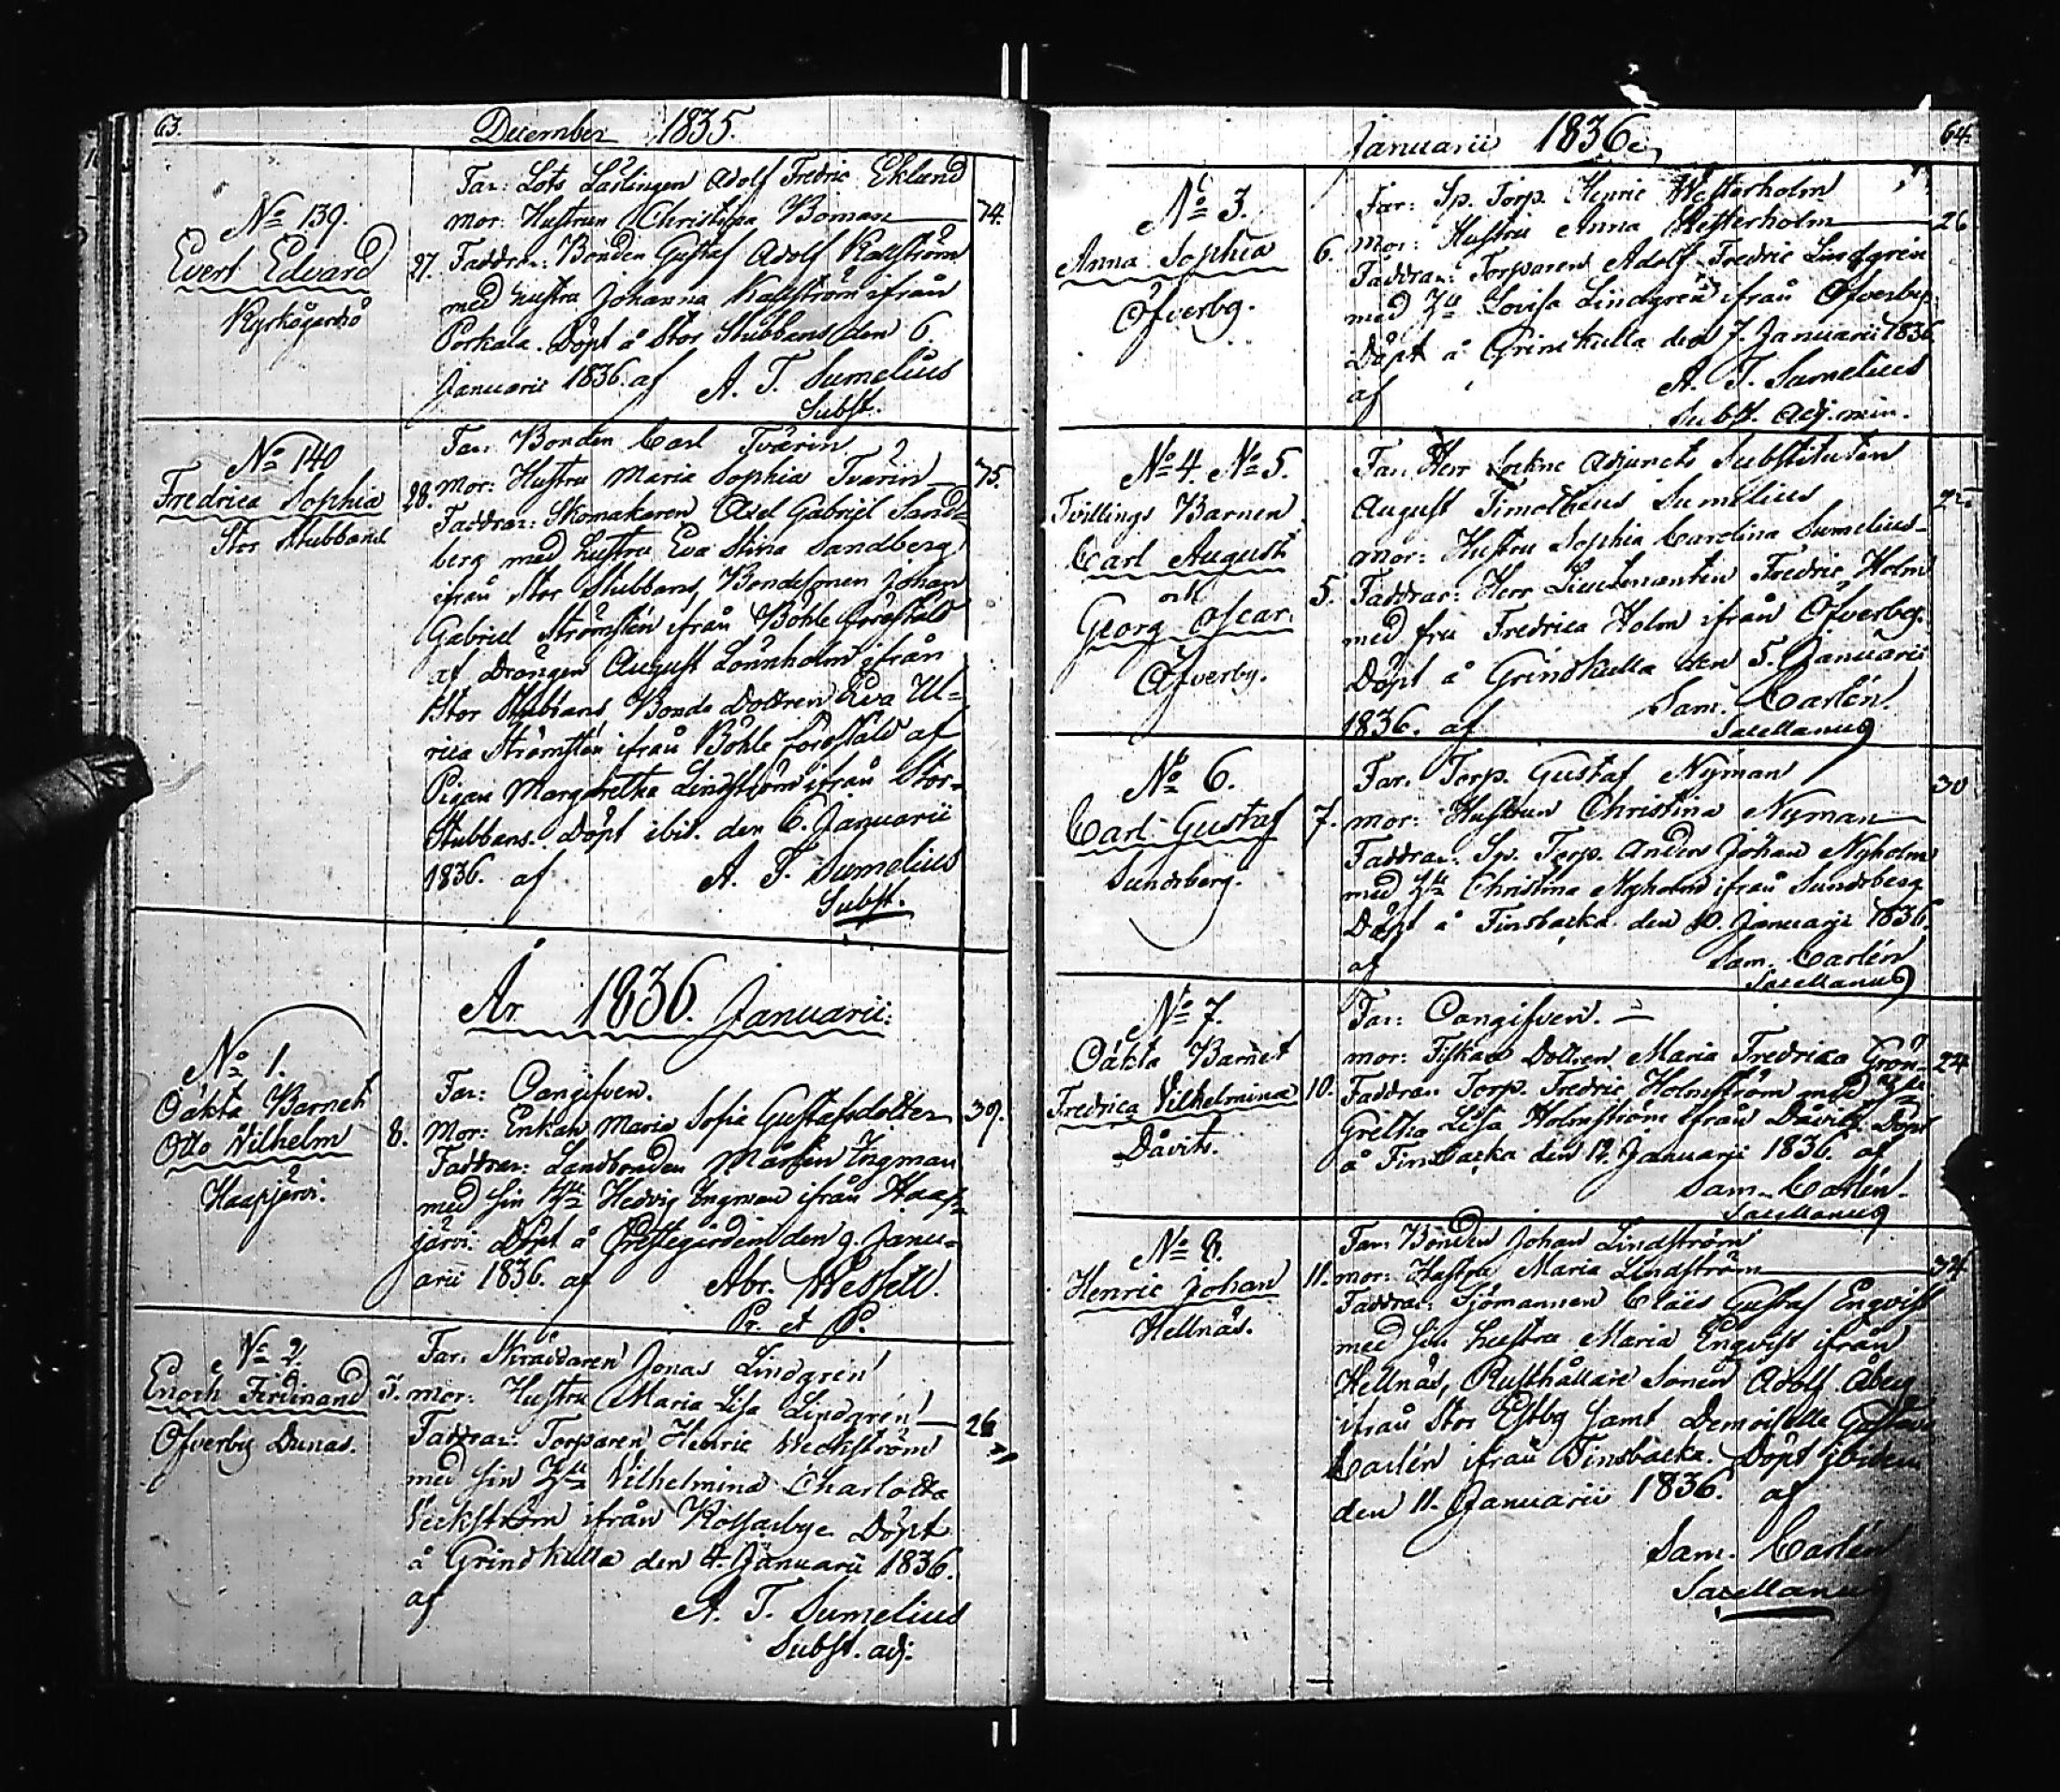 63.
December 1835.
No 139.
Evert Edvard
Kyrkogårdsö
27.
Far: Lots Lärlingen Adolf Fredric Eklund
mor: Hustrun Christina Boman
74.
Faddrar: Bonden Gustaf Adolf Kallström
med hustru Johanna Kallström ifrån
Porkala. Döpt å Stor Stubbans den 6.
Januarii 1836. af A. T. Sumelius
Subst.
No 140
Fredrica Sophia
Stor Stubbans
28.
Far: Bonden Carl Tvärin
mor: Hustru Maria Sophia Tvärin
75.
Faddrar: Skomakaren Axel Gabriel Sand=
berg med hustru Eva Stina Sandberg
ifrån Stor Stubbans, Bondesonen Johan
Gabriel Strömsten ifrån Böhle föreställd
af drängen August Lönnholm ifrån
Stor Stubbans Bonde Dottren Eva Ul=
rica Strömsten ifrån Böhle föreställd af
Pigan Margaretha Lindström ifrån Stor=
Stubbans. Döpt ibid. den 6. Januarii
1836. af A. T. Sumelius
Subst.
År 1836. Januarii.
No 1.
Oäkta Barnet
Otto Wilhelm
Haapjärvi.
8.
Far: Oangifven.
Mor: Enkan Maria Sofia Gustafsdotter
39.
Faddrar: Landbonden Mårten Ingman
med sin Hu Hedvig Ingman ifrån Haap=
järvi. Döpt å Prestegården den 9. Janu=
arii 1836. af Abr. Wessell.
Pr. et P.
No 2.
Enoch Ferdinand
Öfverby Dunas.
3.
Far: Skräddaren Jonas Lindgren
mor: Hustru Maria Lisa Lindgren
26
Faddrar: Torparen Henric Weckström
med sin Hu Vilhelmina Charlotta
Veckström ifrån Kolsarby Döpt
å Grindkulla den 4. Januarii 1836.
af A. T. Sumelius
Subst. adj.
Januarii 1836.
64.
No 3.
Anna Sophia
Öfverby.
6.
Far: Sp. Torp. Henric Westerholm
Mor: Hustru Anna Westerholm
26
Faddrar: Torparen Adolf Fredric Lindgren
med Hu Lovisa Lindgren ifrån Öfverby.
Döpt å Grindkulla den 7. Januarii 1836
af A. T. Sumelius
Subst. Adj. min.
No 4. No 5.
Tvillings Barnen
Carl August
och
Georg Oscar.
Öfverby.
5.
Far: Herr Sockne Adjuncts Substituten
August Timotheus Sumelius
mor: Hustru Sophia Carolina Sumelius
Faddrar: Herr Lieutenanten Fredric Holm
med fru Fredrica Holm ifrån Öfverby.
Döpt å Grindkulla den 5. Januarii
1836. af Sam. Carlén
Sacellanus
No 6.
Carl Gustaf
Sundsberg.
7.
Far. Torp. Gustaf Nyman
mor: Hustrun Christina Nyman
30
Faddrar: Sp. Torp. Anders Johan Nyholm
med Hu Christina Nyholm ifrån Sundsberg
Döpt å Finsbacka den 10. Januarii 1836.
af Sam. Carlén
Sacellanus
No 7.
Oäkta Barnet
Fredrica Vilhelmina
Dåvits.
10.
Far: Oangifven.
mor: Fiskare Dottren Maria Fredrica Grön
24
Faddrar: Torp. Fredric Holmström med Hu
Gretha Lisa Holmström ifrån Dåvits. Döpt
å Finsbacka den 12. Januarii 1836. af
Sam. Carlén.
Sacellanus
No 8.
Henric Johan
Hellnäs.
11.
Far: Bonden Johan Lindström
mor: Hustru Maria Lindström
34
Faddrar: Sjömannen Claës Gustaf Engvist
med sin hustru Maria Engvist ifrån
Hellnäs, Rusthållare Sonen Adolf Åberg
ifrån Stor Estby samt Demoiselle Gustava
Carlén ifrån Finsbacka. Döpt ibidem
den 11. Januarii 1836. af
Sam. Carlén
Sacellanus